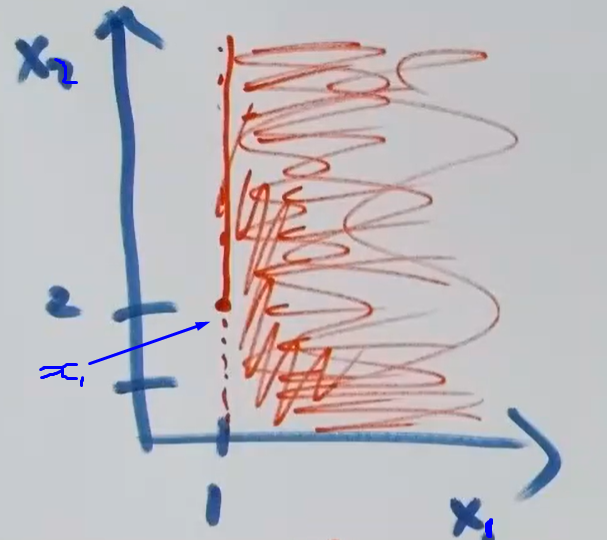 x₂
2
x₁
1
x₁